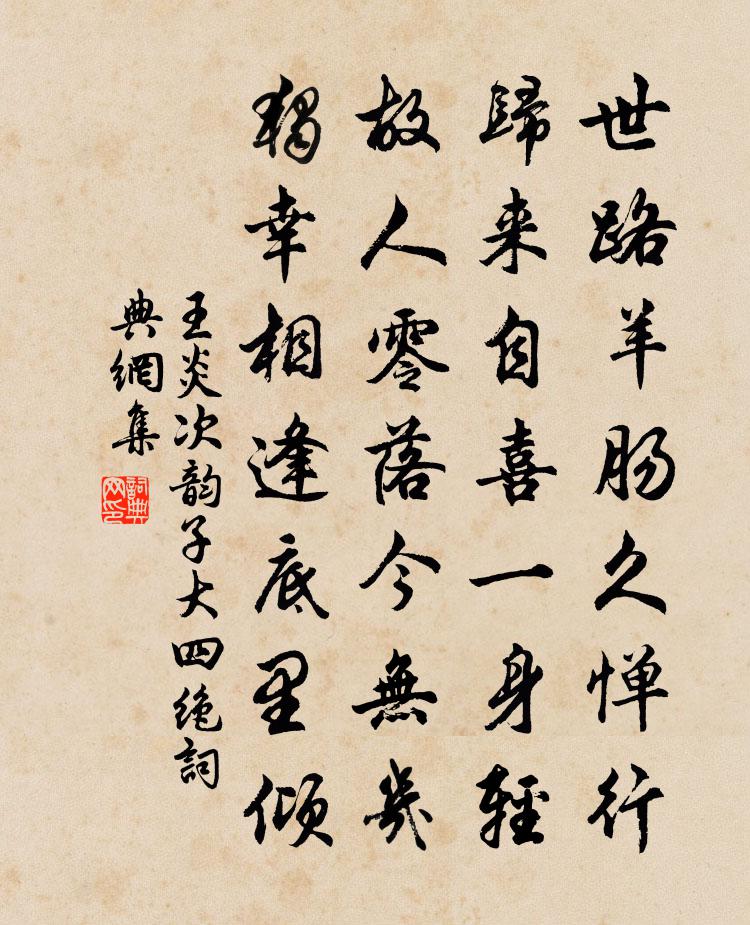 世路羊肠久惮行
歸来自喜一身輕
故人零落今無幾
独幸相逢底里倾
王炎次韵子大四绝詞
典網集
詞典
网印